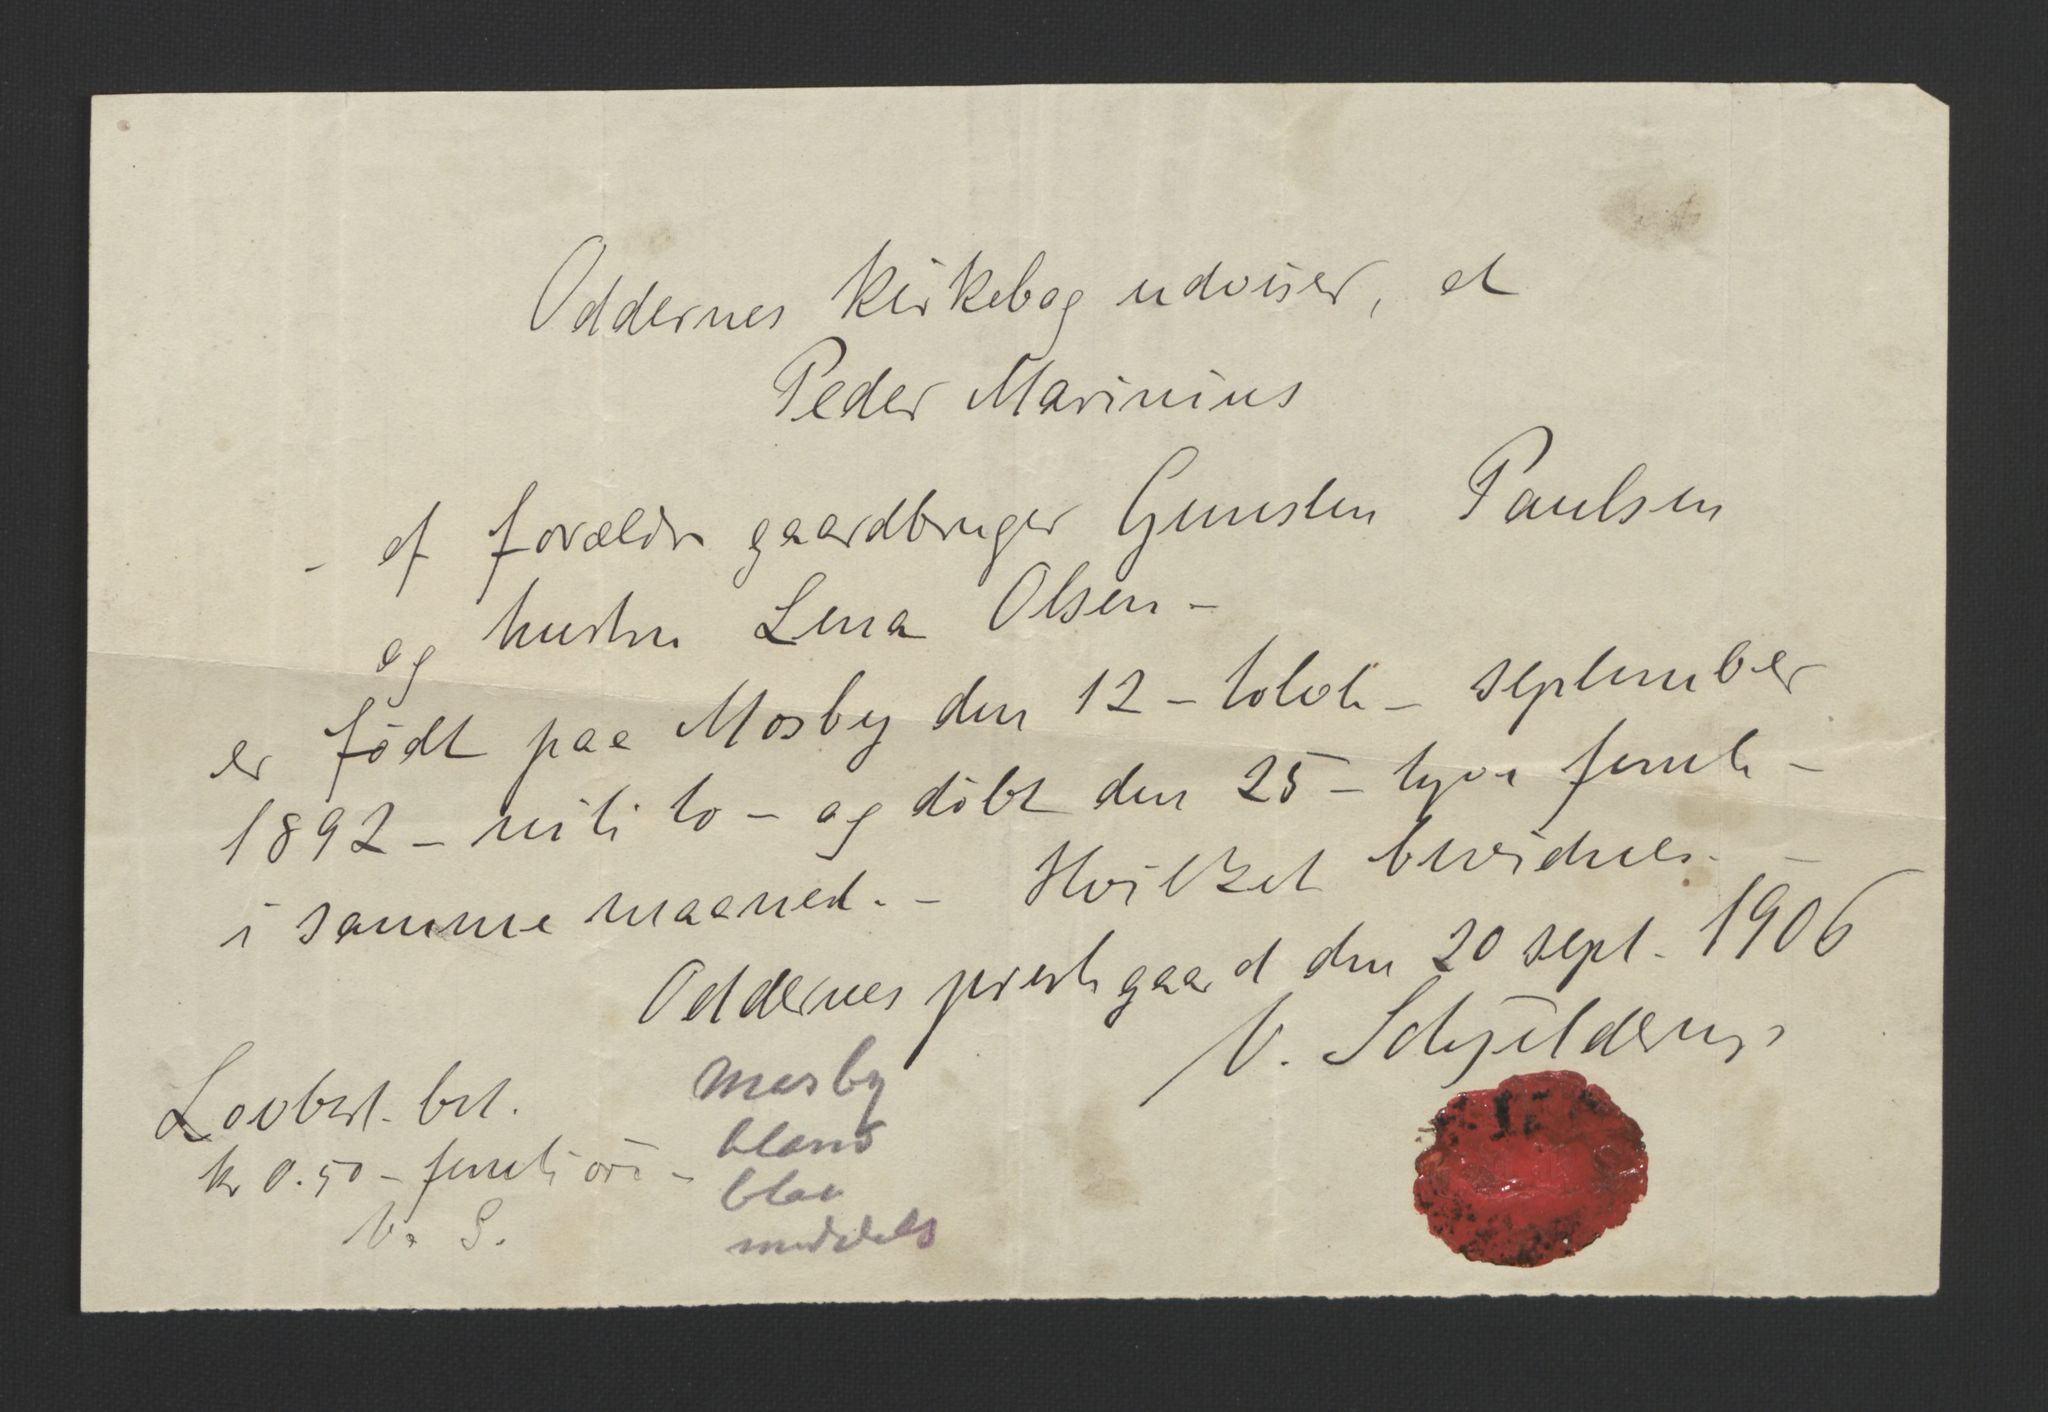 Oddernes kirkebog udviser, at
Peder Marinius
- af forældre gaardbruger Gunsten Paulsen
og hustru Lena Olsen -
er født paa Mosby den 12 - tolvte - september
1892 - nitti to - og døbt den 25 - tyve femte -
i samme maaned. - Hvilket bevidnes. -
Oddernes prestegaard den 20 sept. 1906
V. Schjelderup
Lovbest. bet.
kr 0.50 - femti øre -
V. S.
Mosby
blond
blaa
middels